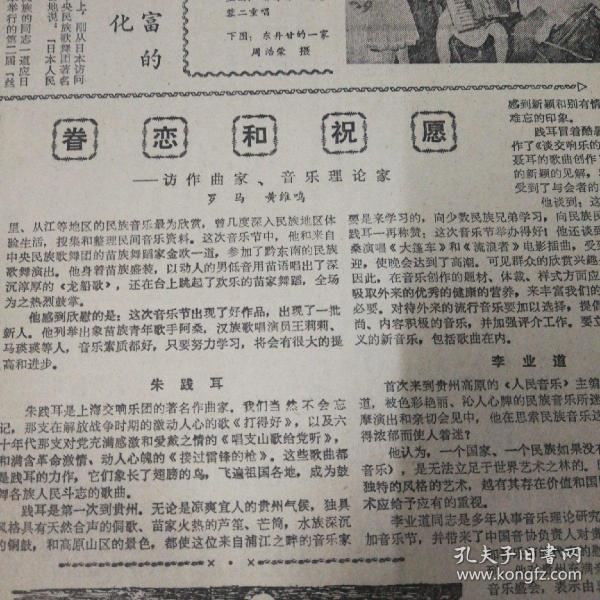 富的
化
蓉二重唱
下图:东丹甘的一家
周浩荣 摄
上,刚从日本访问
央民族歌舞团著名
地说:“日本人民
族的同志一道应日
举行的第二届“丝
眷恋和祝愿
——访作曲家、音乐理论家
罗马 黄维鸣
里、从江等地区的民族音乐最为欣赏,曾几度深入民族地区体
验生活,搜集和整理民间音乐资料。这次音乐节中,他和来自
中央民族歌舞团的苗族舞蹈家金欧一道,参加了黔东南的民族
歌舞演出。他身着苗族盛装,以动人的男低音用苗语唱出了深
沉淳厚的《龙船歌》,还在台上跳起了欢乐的苗家舞蹈,全场
为之热烈鼓掌。
他感到欣慰的是:这次音乐节出现了好作品,出现了一批
新人。他列举出象苗族青年歌手阿桑,汉族歌唱演员王莉莉、
马瑛瑛等人,音乐素质都好,只要努力学习,将会有很大的提
高和进步。
朱践耳
朱践耳是上海交响乐团的著名作曲家。我们当然不会忘
记,那支在解放战争时期的激动人心的歌《打得好》,以及六
十年代那支对党充满感激和爱戴之情的《唱支山歌给党听》,
和满含革命激情、动人心魄的《接过雷锋的枪》。这些歌曲都
是践耳的力作,它们象长了翅膀的鸟,飞遍祖国各地,成为鼓
舞各族人民斗志的歌曲。
践耳是第一次到贵州。无论是凉爽宜人的贵州气候,独具
风格具有天然合声的侗歌、苗家火热的芦笙、芒筒,水族深沉
的铜鼓,和高原山区的景色,都使这位来自浦江之畔的音乐家
感到新颖和别有情
难忘的印象。
践耳冒着酷暑
作了《谈交响乐的
聂耳的歌曲创作
的新颖的见解,
受到了与会者的
他谈到:这
要是来学习的,向少数民族兄弟学习,向民族民
践耳一再称赞:这次音乐节举办得好!他还谈到
桑演唱《大篷车》和《流浪者》电影插曲,受到
迎,使晚会达到了高潮。可见群众的欣赏兴趣
因此,在音乐创作的题材、体裁、样式方面应
吸取外来的优秀的健康的营养,来丰富我们的
必要。对待外来的流行音乐要加以选择,提倡
尚、内容积极的音乐,并加强评介工作。要立
义的新音乐,包括歌曲在内。
李业道
首次来到贵州高原的《人民音乐》主
道,被色彩艳丽、沁人心脾的民族音乐所迷
摩演出和亲切会见中,他在思索民族音乐
得浓郁而使人着迷?
他认为,一个国家、一个民族如果没
音乐》,是无法立足于世界艺术之林的。
独特的风格的艺术,越有其存在价值和国
术应给予应有的重视。
李业道同志是多年从事音乐理论研究
加音乐节,并带来了中国音协负责人对贵
音乐盛会,表示由
孔夫子旧书网
www.kongfz.com